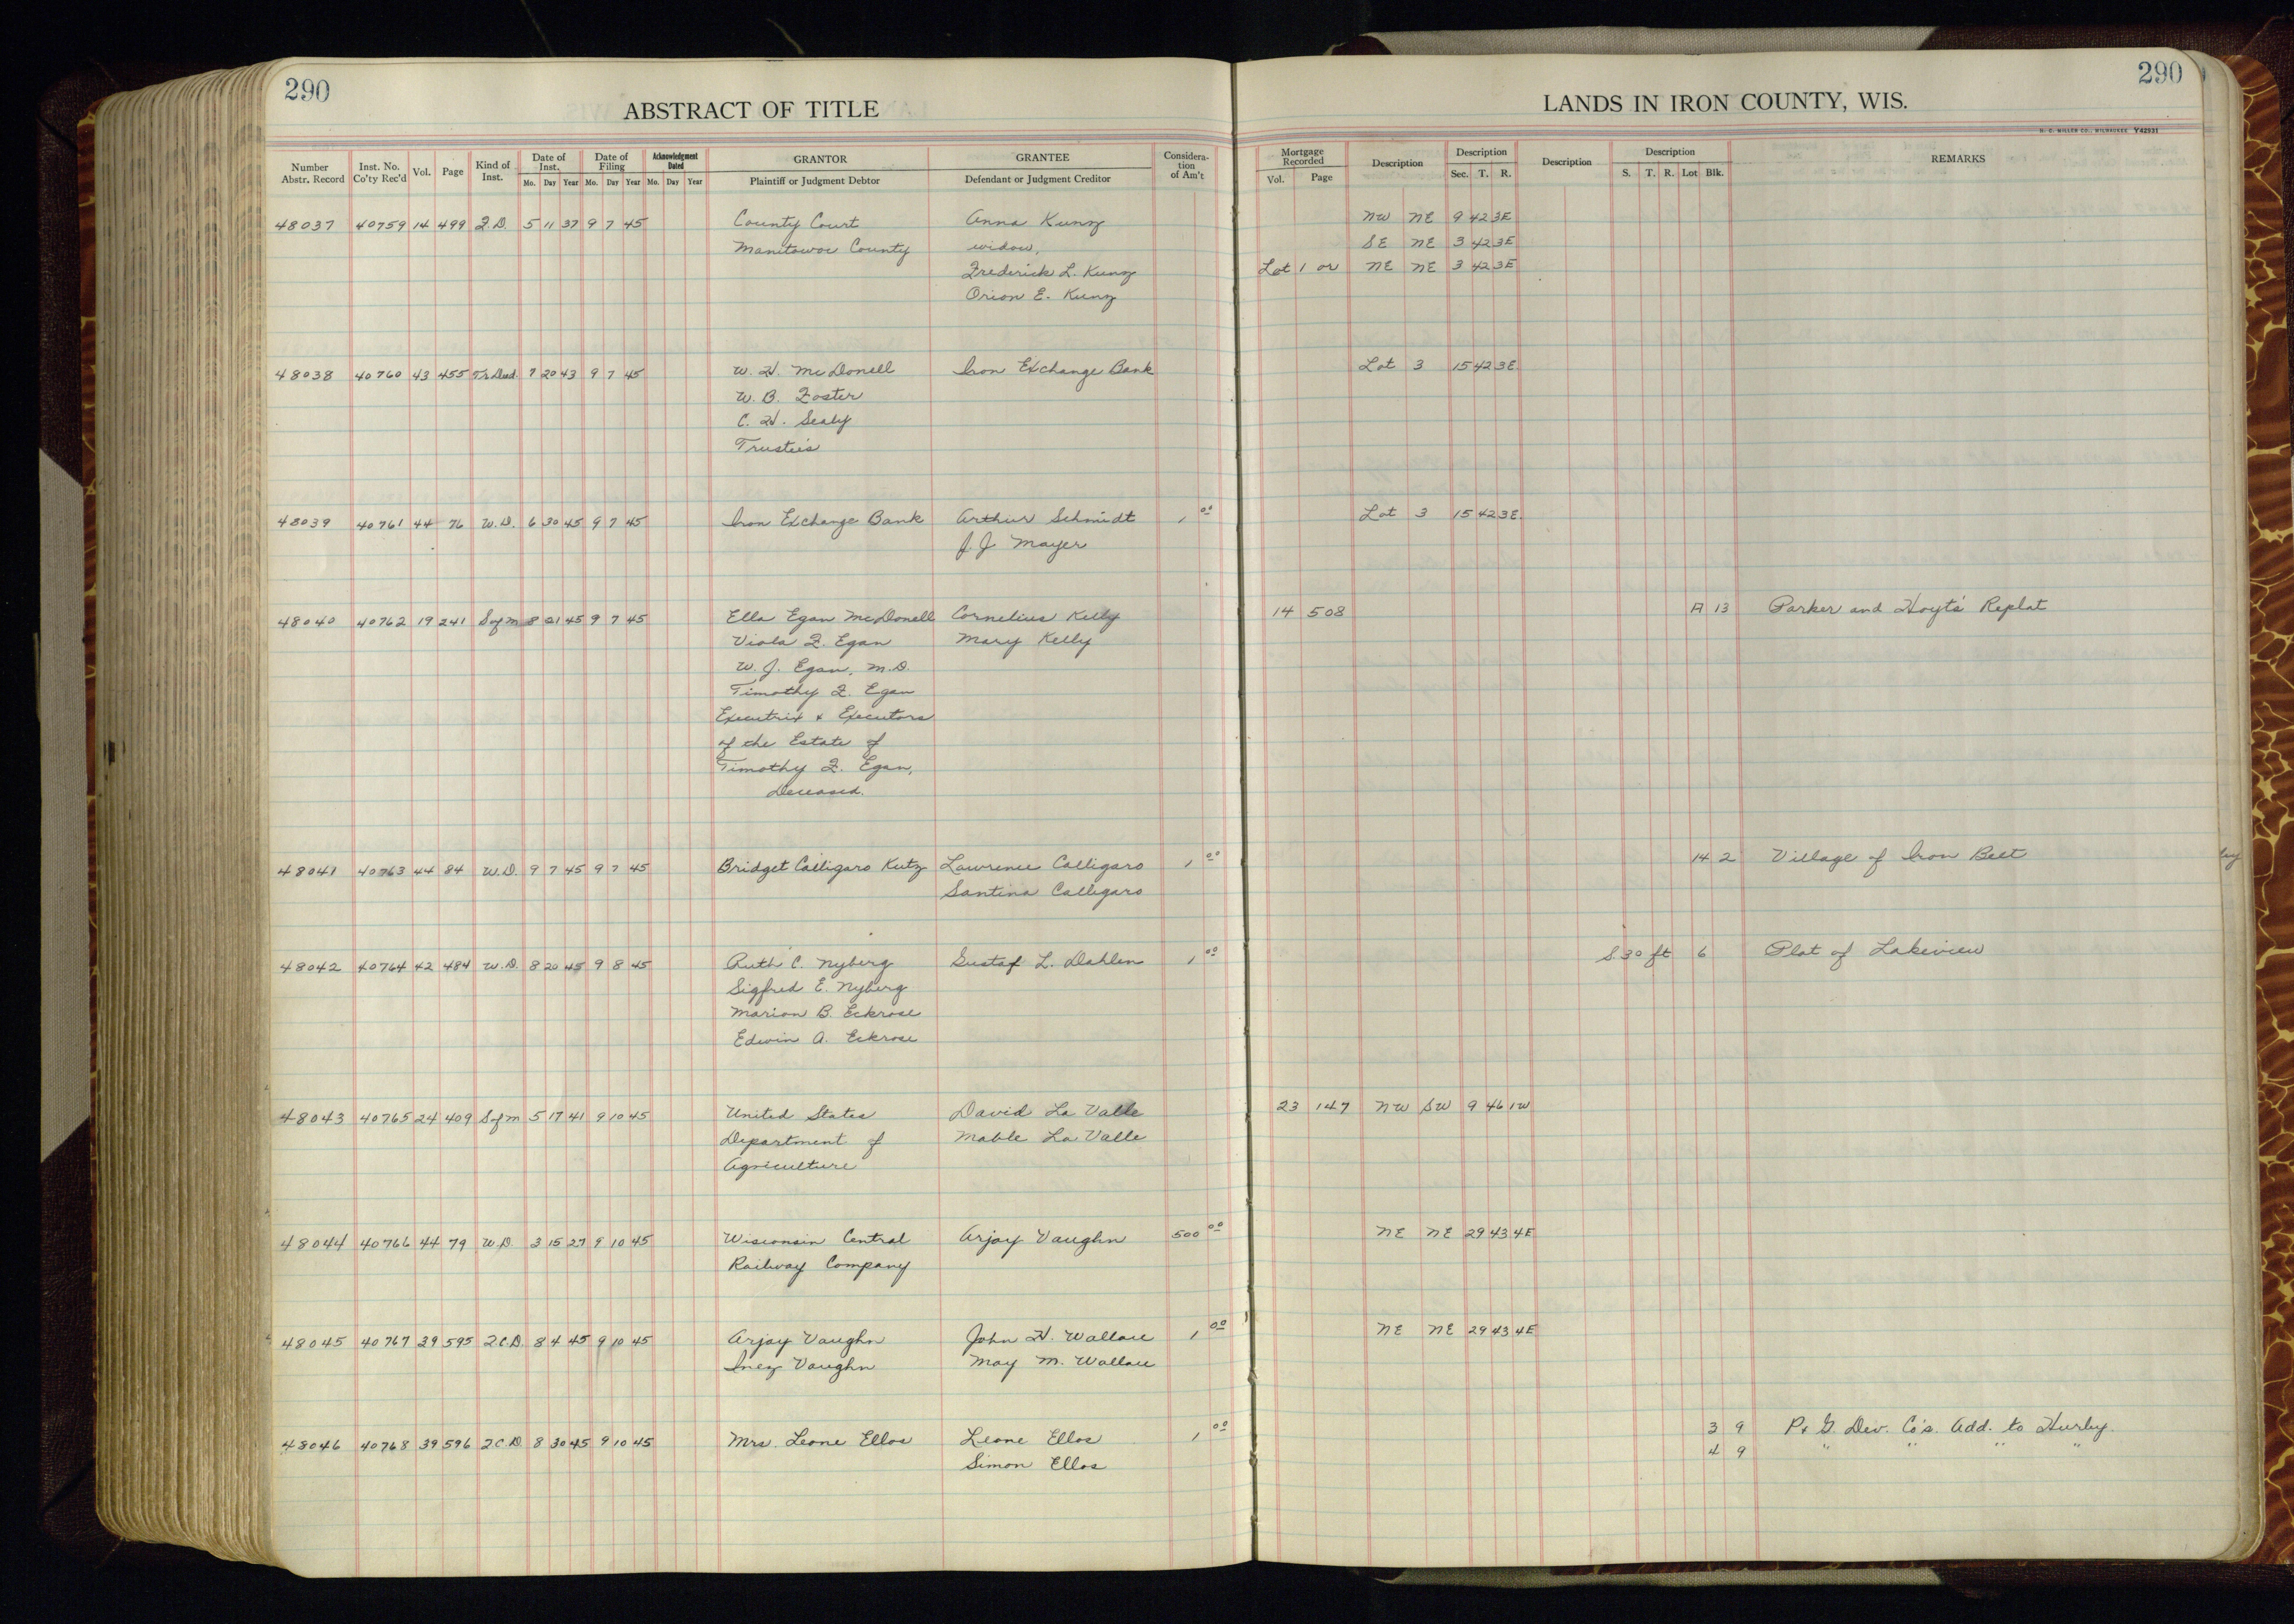 290
290
ABSTRACT OF TITLE
LANDS IN IRON COUNTY, WIS.
H. C. MILLER CO., MILWAUKEE Y42931
Number Abstr. Record
Inst. No. Co'ty Rec'd
Vol.
Page
Kind of Inst.
Date of Inst.
Mo. Day Year
Date of Filing
Mo. Day Year
Acknowledgment Dated
Mo. Day Year
GRANTOR
Plaintiff or Judgment Debtor
GRANTEE
Defendant or Judgment Creditor
Considera-
tion
of Am't
Mortgage Recorded
Vol. Page
Description
Description
Sec. T. R.
Description
Description
S. T. R. Lot Blk.
REMARKS
48037 40759 14 499 F.D. 5 11 37 9 7 45 County Court Anna Kunz NW NE 9 42 3E
Manitowoc County widow, SE NE 3 42 3E
Frederick L. Kunz Lot 1 or NE NE 3 42 3E
Orion E. Kunz
48038 40760 43 455 Tr. Deed. 7 20 43 9 7 45 W. H. McDonell Iron Exchange Bank Lot 3 15 42 3E.
W. B. Foster
C. H. Sealy
Trustees
48039 40761 44 76 W.D. 6 30 45 9 7 45 Iron Exchange Bank Arthur Schmidt 1 00 Lot 3 15 42 3E.
J. J. Mayer
48040 40762 19 241 S of M 8 21 45 9 7 45 Ella Egan McDonell Cornelius Kelly 14 508 A 13 Parker and Hoyt's Replat
Viola F. Egan Mary Kelly
W. J. Egan, M.D.
Timothy F. Egan
Executrix & Executors
of the Estate of
Timothy F. Egan,
Deceased.
48041 40763 44 84 W.D. 9 7 45 9 7 45 Bridget Calligaro Kutz Lawrence Calligaro 1 00 14 2 Village of Iron Belt
Santina Calligaro
48042 40764 42 484 W.D. 8 20 45 9 8 45 Ruth C. Nyberg Gustaf L. Dahlen 1 00 S. 30 ft 6 Plat of Lakeview
Sigfred E. Nyberg
Marion B. Eckrose
Edwin A. Eckrose
48043 40765 24 409 S of M 5 17 41 9 10 45 United States David La Valle 23 147 NW SW 9 46 1W
Department of Mable La Valle
Agriculture
48044 40766 44 79 W.D. 3 15 27 9 10 45 Wisconsin Central Arjay Vaughn 500 00 NE NE 29 43 4E
Railway Company
48045 40767 39 595 Q.C.D. 8 4 45 9 10 45 Arjay Vaughn John H. Wallace 1 00 NE NE 29 43 4E
Inez Vaughn May M. Wallace
48046 40768 39 596 Q.C.D. 8 30 45 9 10 45 Mrs. Leone Ellos Leone Ellos 1 00 3 9 P. & G. Dev. Co's. Add. to Hurley.
Simon Ellos 4 9 " " " "